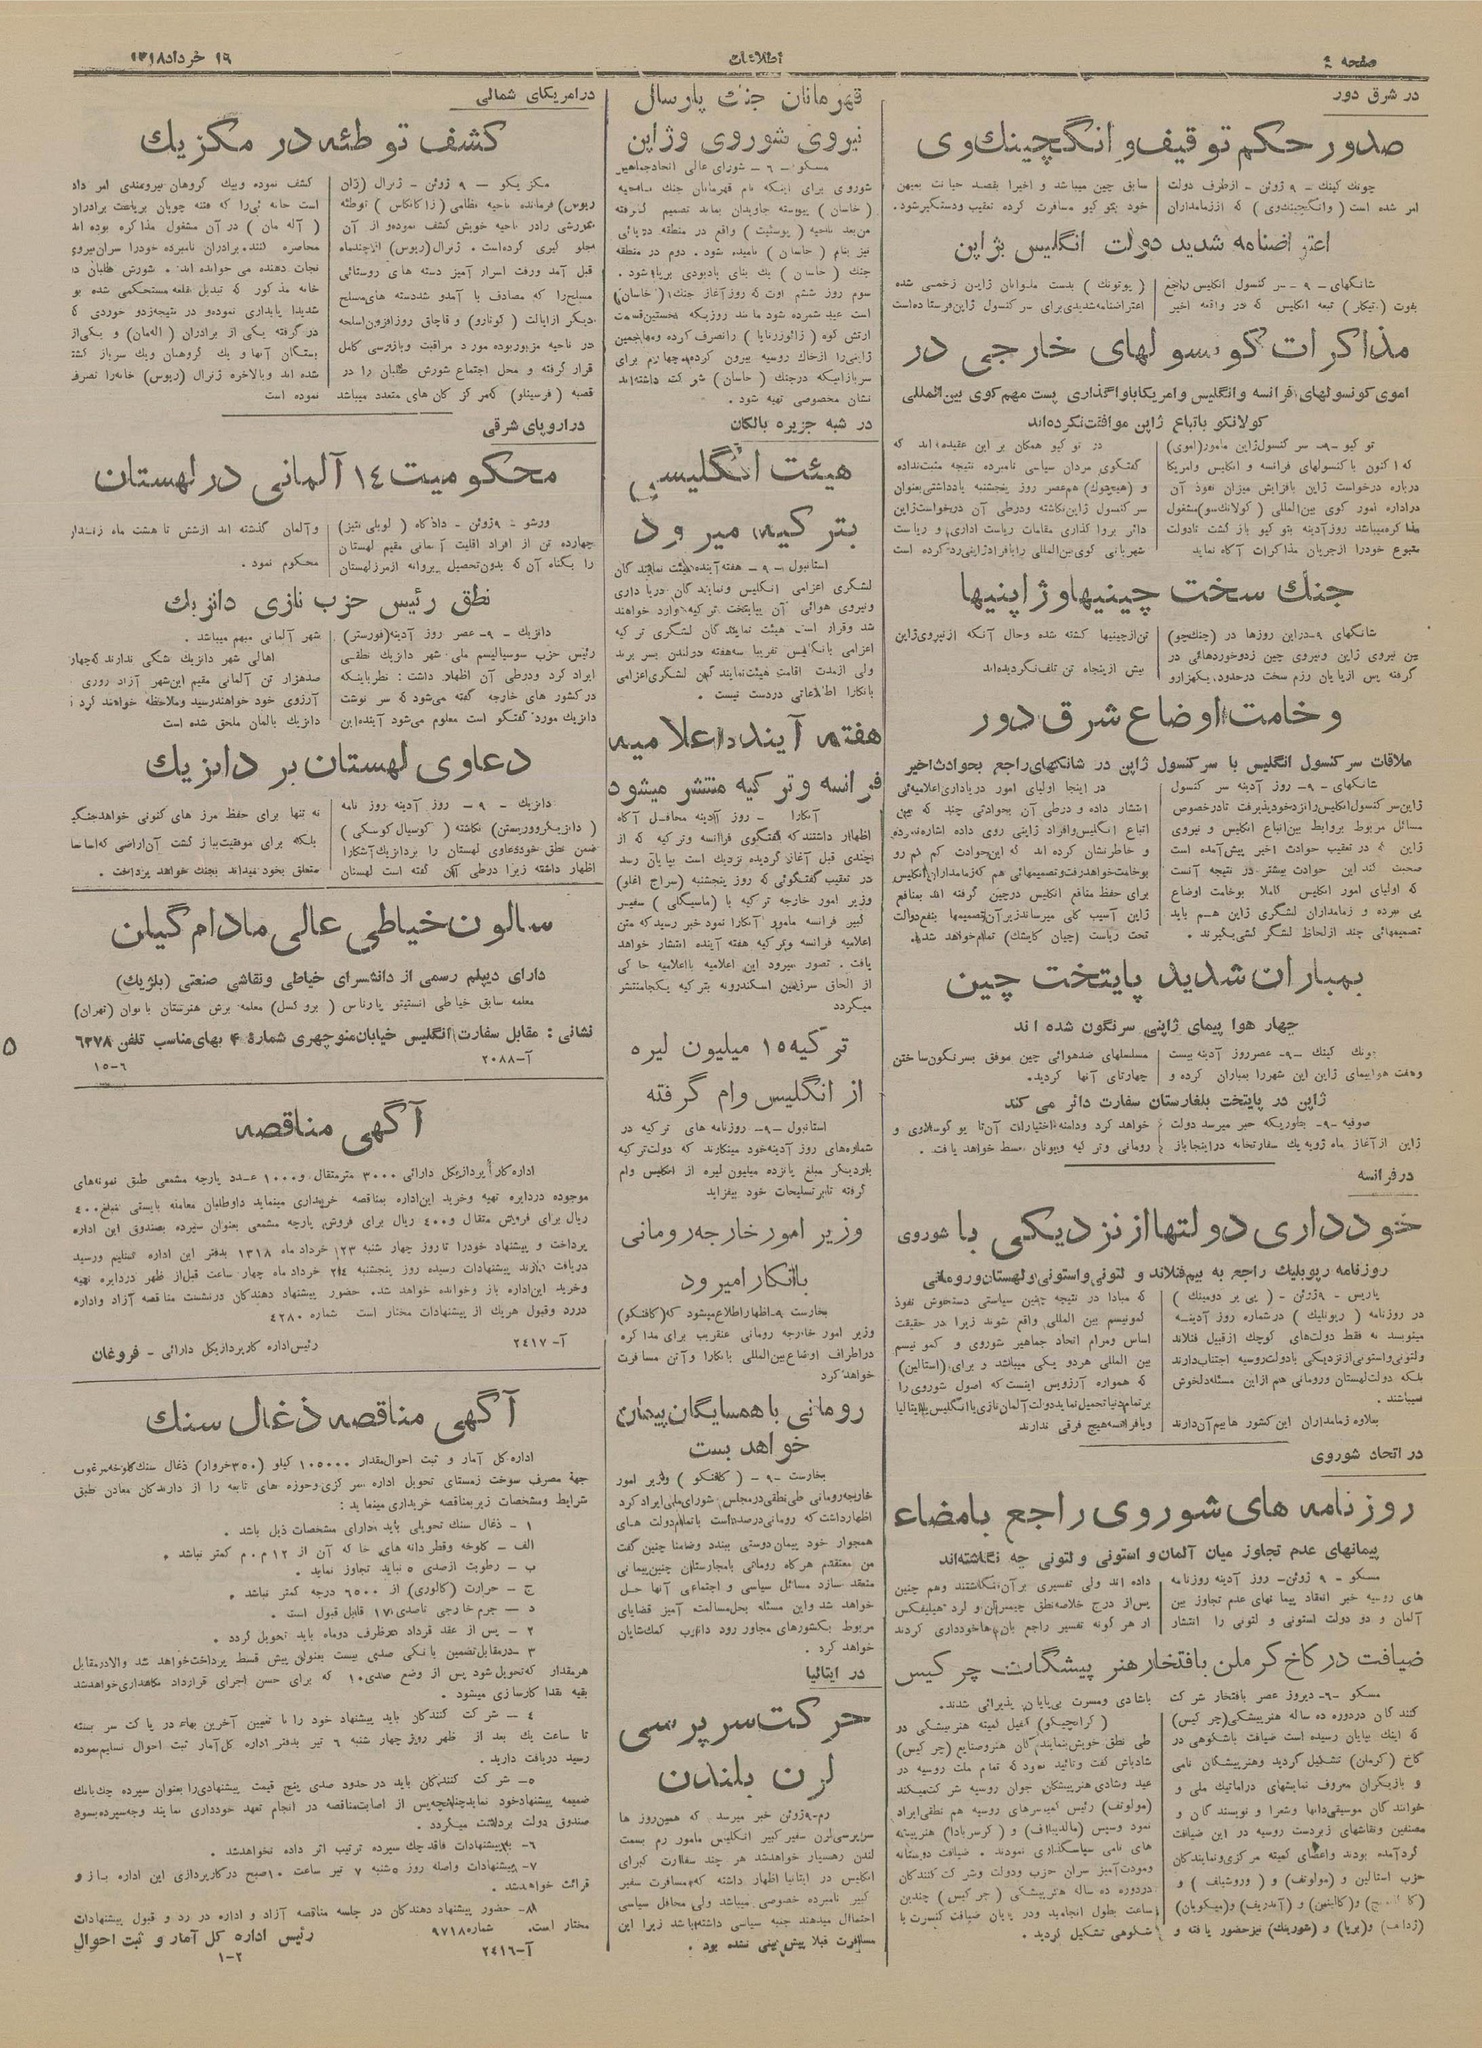 صفحه ٤
اطلاعات
١٦ خرداد ١٣١٨
در شرق دور
صدور حکم توقیف وانگچینك‌وی
چونك کینك - ٩ ژوئن - ازطرف دولت
امر شده است (وانگچینك‌وی) که اززمامداران
سابق چین میباشد و اخیرا بقصد خیانت بمیهن
خود بتو کیو مسافرت کرده تعقیب ودستگیر شود.
اعتراضنامه شدید دولت انگلیس بژاپن
شانگهای -٩- سر کنسول انگلیس راجع
بفوت (تینکلر) تبعه انگلیس که در واقعه اخیر
(پوتونك) بدست ملوانان ژاپن زخمی شده
اعتراضنامه شدیدی برای سر کنسول ژاپن فرستاده است
مذاکرات کونسولهای خارجی در
اموی کونسولهای فرانسه وانگلیس وامریکا باواگذاری پست مهم کوی بین‌المللی
کولانکو باتباع ژاپن موافقت نکرده‌اند
تو کیو -٩- سر کنسول ژاپن مامور (اموی)
که اکنون با کنسولهای فرانسه و انگلیس وامریکا
درباره درخواست ژاپن بافزایش میزان نفوذ آن
دراداره امور کوی بین‌المللی (کولانکسو) مشغول
مذاکره میباشد روز آدینه بتو کیو باز گشت تادولت
متبوع خودرا ازجریان مذاکرات آگاه نماید
در تو کیو همکان بر این عقیده‌اند که
گفتگوی مردان سیاسی نامبرده نتیجه مثبت نداده
و (هیچوك) هم‌عصر روز پنجشنبه یادداشتی بعنوان
سر کنسول ژاپن نگاشته ودرطی آن درخواست ژاپن
دائر بروا گذاری مقامات ریاست اداری و ریاست
شهربانی کوی بین‌المللی را بافراد ژاپنی رد کرده است
جنك سخت چینیها و ژاپنیها
شانگهای -٩- دراین روزها در (چنك‌چو)
بین نیروی ژاپن ونیروی چین زدوخوردهائی در
گرفته پس ازپایان رزم سخت درحدود یکهزارو
تن ازچینیها کشته شده وحال آنکه ازنیروی ژاپن
بیش ازپنجاه تن تلف نگردیده‌اند
وخامت اوضاع شرق دور
ملاقات سر کنسول انگلیس با سر کنسول ژاپن در شانگهای راجع بحوادث اخیر
شانگهای -٩- روز آدینه سر کنسول
ژاپن سر کنسول انگلیس را نزد خود پذیرفت تادرخصوص
مسائل مربوط بروابط بین اتباع انگلیس و نیروی
ژاپن که در تعقیب حوادث اخیر پیش آمده است
صحبت کند این حوادث بیشتر در نتیجه آنست
که اولیای امور انگلیس کاملا بوخامت اوضاع
پی نبرده و زمامداران لشگری ژاپن هم باید
تصمیمهائی چند ازلحاظ لشگر کشی بگیرند.
در اینجا اولیای امور دریاداری اعلامیه‌ئی
انتشار داده و درطی آن بحوادثی چند که بین
اتباع انگلیس وافراد ژاپنی روی داده اشاره نموده
و خاطرنشان کرده اند که این حوادث کم کم رو
بوخامت خواهد رفت وتصمیمهائی هم که زمامداران انگلیس
برای حفظ منافع انگلیس درچین گرفته اند بمنافع
ژاپن آسیب کلی میرساند زیر آن تصمیمها بنفع دولت
تحت ریاست (چیان کایشك) تمام خواهد شد.
بمباران شدید پایتخت چین
چهار هوا پیمای ژاپنی سرنگون شده اند
چونك کینك -٩- عصر روز آدینه بیست
وهفت هواپیمای ژاپن این شهررا بمباران کرده و
مسلسلهای ضدهوائی چین موفق بسرنگون ساختن
چهارتای آنها گردید.
ژاپن در پایتخت بلغارستان سفارت دائر می کند
صوفیه -٩- بطوریکه خبر میرسد دولت
ژاپن از آغاز ماه ژویه یك سفارتخانه دراینجا باز
خواهد کرد ودامنه اختیارات آن تا یو گوسلاوی و
رومانی وتر کیه ویونان بسط خواهد یافت.
درفرانسه
خودداری دولتها از نزدیکی با شوروی
روزنامه رپوبلیك راجع به بیم فنلاند و لتونی واستونی و لهستان و رومانی
پاریس - ٩ ژوئن - (پی یر دومینك)
در روزنامه (رپوبلیك) درشماره روز آدینه
مینویسد نه فقط دولت‌های کوچك ازقبیل فنلاند
ولتونی واستونی از نزدیکی با دولت روسیه اجتناب دارند
بلکه دولت لهستان ورومانی هم ازاین مسئله دلخوش
نمیباشند.
بعلاوه زمامداران این کشور هابیم آن دارند
که مبادا در نتیجه چنین سیاستی دستخوش نفوذ
کمونیسم بین المللی واقع شوند زیرا در حقیقت
اساس ومرام اتحاد جماهیر شوروی و کمونیسم
بین المللی هردو یکی میباشد و برای (استالین)
که همواره آرزویش اینست که اصول شوروی را
بر تمام دنیا تحمیل نماید دولت آلمان نازی با انگلیس یا ایتالیا
ویا فرانسه هیچ فرقی ندارند
در اتحاد شوروی
روزنامه های شوروی راجع بامضاء
پیمانهای عدم تجاوز میان آلمان و استونی و لتونی چه نگاشته‌اند
مسکو - ٩ ژوئن - روز آدینه روزنامه
های روسیه خبر انعقاد پیمانهای عدم تجاوز بین
آلمان و دو دولت استونی و لتونی را انتشار
داده اند ولی تفسیری بر آن نگاشتند وهم چنین
پس از درج خلاصه نطق چمبرلن و لرد هیلیفکس
از هر گونه تفسیر راجع بان‌ها خودداری کردند
ضیافت در کاخ کرملن بافتخار هنر پیشگان چرکیس
مسکو -٦- دیروز عصر بافتخار شرکت
کنند گان دردوره ده ساله هنرپیشکی (چر کیس)
که اینك بپایان رسیده است ضیافت باشکوهی در
کاخ (کرملن) تشکیل گردید وهنرپیشکان نامی
و بازیگران معروف نمایشهای دراماتیك ملی و
خوانند گان موسیقی دانها وشعرا و نویسند گان و
مصنفین ونقاشهای زبردست روسیه در این ضیافت
گرد آمده بودند واعضای کمیته مرکزی ونمایندگان
حزب استالین و (مولوتف) و (وروشیلف) و
و (کالینین) و (آندریف) و (میکویان)
و (بریا) و (شورنیك) نیز حضور یافته و
باشادی ومسرت بی‌پایان پذیرائی شدند.
(کرانچیکو) کفیل کمیته هنرپیشکی در
طی نطق خویش بنمایند گان هنر وصنایع (چر کیس)
شادباش گفت وتائید نمود که تمام ملت روسیه در
عید وشادی هنرپیشکان جوان روسیه شرکت میکند
(مولوتف) رئیس کمیسرهای روسیه هم نطقی ایراد
نمود وسپس (مالدیبااف) و (کرسربادا) هنرپیشه
های نامی سپاسگذاری نمودند. ضیافت دوستانه
ومودت آمیز سران حزب ودولت وشرکت کنندگان
دردوره ده ساله هنرپیشکی (چر کیس) چندین
ساعت بطول انجامید ودر پایان ضیافت کنسرت با
شکوهی تشکیل گردید.
قهرمانان جنك پارسال
نیروی شوروی و ژاپن
مسکو - ٦ - شورای عالی اتحاد جماهیر
شوروی برای اینکه نام قهرمانان جنك ناحیه
(خاسان) پیوسته جاویدان بماند تصمیم گرفته
من‌بعد ناحیه (پوسئیت) واقع در منطقه دریائی
نیز بنام (خاسان) نامیده شود. دوم در منطقه
جنك (خاسان) یك بنای یادبودی برپا شود.
سوم روز ششم اوت که روز آغاز جنك (خاسان)
است عید شمرده شود مانند روزیکه نخستین قسمت
ارتش کوه (زائوزرنایا) را تصرف کرده ومهاجمین
ژاپنی را ازخاك روسیه بیرون کرده. چهارم برای
سربازانیکه درجنك (خاسان) شرکت داشته‌اند
نشان مخصوصی تهیه شود.
در شبه جزیره بالکان
هیئت انگلیسی
بترکیه میرود
استانبول -٩- هفته آینده هیئت نمایند گان
لشگری اعزامی انگلیس ونمایند گان دریا داری
ونیروی هوائی آن بپایتخت تر کیه وارد خواهند
شد وقرار است هیئت نمایند گان لشگری تر کیه
اعزامی بانگلیس تقریبا سه‌هفته درلندن بسر برند
ولی ازمدت اقامت هیئت نمایند گان لشگری اعزامی
بانکارا اطلاعاتی دردست نیست.
هفته آینده اعلامیه
فرانسه و ترکیه منتشر میشود
آنکارا - روز آدینه محافل آگاه
اظهار داشتند که گفتگوی فرانسه وتر کیه که از
چندی قبل آغاز گردیده نزدیك است بپایان رسد
در تعقیب گفتگوئی که روز پنجشنبه (سراج اغلو)
وزیر امور خارجه تر کیه با (ماسیگلی) سفیر
کبیر فرانسه مامور آنکارا نمود خبر رسید که متن
اعلامیه فرانسه وتر کیه هفته آینده انتشار خواهد
یافت. تصور میرود این اعلامیه بااعلامیه حاکی
از الحاق سرزمین اسکندرونه بتر کیه یکجا منتشر
میگردد
ترکیه ١٥ میلیون لیره
از انگلیس وام گرفته
استانبول -٩- روزنامه های ترکیه در
شماره‌های روز آدینه خود مینکارند که دولت تر کیه
باردیگر مبلغ پانزده میلیون لیره از انگلیس وام
گرفته تابر تسلیحات خود بیفزاید
وزیر امور خارجه رومانی
بانکارا میرود
بخارست -٩- اظهار اطلاع میشود که (کافنکو)
وزیر امور خارجه رومانی عنقریب برای مذاکره
دراطراف اوضاع بین‌المللی بانکارا وآتن مسافرت
خواهد کرد
رومانی با همسایگان پیمان
خواهد بست
بخارست -٩- (کافنکو) وزیر امور
خارجه رومانی طی نطقی درمجلس شورای ملی ایراد کرد
اظهار داشت که رومانی درصدد است با تمام دولت های
همجوار خود پیمان دوستی ببندد وضمنا چنین گفت
من معتقدم هر گاه رومانی بامجارستان چنین پیمانی
منعقد سازد مسائل سیاسی و اجتماعی آنها حل
خواهد شد واین مسئله بحل مسالمت آمیز قضایای
مربوط بکشورهای مجاور رود دانوب کمك شایان
خواهد کرد.
در ایتالیا
حرکت سر پرسی
لرن بلندن
رم -٩ ژوئن خبر میرسد که همین روز ها
سرپرسی لرن سفیر کبیر انگلیس مامور رم بسمت
لندن رهسپار خواهد شد هر چند سفارت کبرای
انگلیس در ایتالیا اظهار داشته که مسافرت سفیر
کبیر نامبرده خصوصی میباشد ولی محافل سیاسی
احتمال میدهند جنبه سیاسی داشته باشد زیرا این
مسافرت قبلا پیش بینی نشده بود.
درامریکای شمالی
کشف توطئه در مکزیك
مکزیکو - ٩ ژوئن - ژنرال (ژان
ریوس) فرمانده ناحیه نظامی (زاکاتکاس) توطئه
شورشی رادر ناحیه خویش کشف نموده و از آن
جلو گیری کرده است. ژنرال (ریوس) ازچندماه
قبل آمد ورفت اسرار آمیز دسته های روستائی
مسلح را که مصادف با آمدو شد دسته های مسلح
دیگر ازایالت (کونارو) و قاچاق روزافزون اسلحه
در ناحیه مزبور بوده مورد مراقبت وبازرسی کامل
قرار گرفته و محل اجتماع شورش طلبان را در
قصبه (فرسینلو) که مر کز کان های متعدد میباشد
کشف نموده وبیك گروهان نیرومندی امر داد
است خانه ئی را که فتنه جویان بریاست برادران
(آله مان) در آن مشغول مذاکره بوده اند
محاصره کنند. برادران نامبرده خودرا سران نیروی
نجات دهنده می خوانده اند. شورش طلبان در
خانه مذکور که تبدیل بقلعه مستحکمی شده بو
شدیدا پایداری نموده و در نتیجه زدو خوردی که
در گرفته یکی از برادران (اله‌مان) و یکی از
بستگان آنها و یك گروهبان ویك سرباز کشته
شده اند وبالاخره ژنرال (ریوس) خانه را تصرف
نموده است
دراروپای شرقی
محکومیت ١٤ آلمانی در لهستان
ورشو - ٩ ژوئن - دادگاه (لوبلی نیتز)
چهارده تن از افراد اقلیت آلمانی مقیم لهستان
را بگناه آن که بدون تحصیل پروانه ازمرز لهستان
وآلمان گذشته اند ازشش تا هشت ماه زندان
محکوم نمود.
نطق رئیس حزب نازی دانزیك
دانزیك -٩- عصر روز آدینه (فورستر)
رئیس حزب سوسیالیسم ملی شهر دانزیك نطقی
ایراد کرد ودرطی آن اظهار داشت: نظرباینکه
در کشور های خارجه گفته می‌شود که سر نوشت
دانزیك مورد گفتگو است معلوم می‌شود آینده این
شهر آلمانی مبهم میباشد.
اهالی شهر دانزیك شکی ندارند که چهار
صدهزار تن آلمانی مقیم این شهر آزاد روزی
آرزوی خود خواهند رسید وملاحظه خواهند کرد
دانزیك بالمان ملحق شده است
دعاوی لهستان بر دانزیك
دانزیك -٩- روز آدینه روز نامه
(دانزیگروورپستن) نگاشته (کوسیال کوسکی)
ضمن نطق خود دعاوی لهستان را بردانزیك آشکارا
اظهار داشته زیرا درطی آن گفته است لهستان
نه تنها برای حفظ مرز های کنونی خواهد جنگید
بلکه برای موفقیت باز گشت آن اراضی که اساسا
متعلق بخود میداند بجنك خواهد پرداخت.
سالون خیاطی عالی مادام گیلن
دارای دیپلم رسمی از دانشسرای خیاطی ونقاشی صنعتی (بلژیك)
معلمه سابق خیاطی انستیتو پارناس (بروکسل) معلمه برش هنرستان بانوان (تهران)
نشانی: مقابل سفارت انگلیس خیابان منوچهری شمارهٔ ٤ بهای مناسب تلفن ٦٣٧٨
آ-٢٠٨٨
١٥-٦
آگهی مناقصه
اداره کارپردازی کل دارائی ٣٠٠٠ متر متقال و ١٠٠٠ عدد پارچه مشمعی طبق نمونه‌های
موجوده دردایره تهیه وخرید این اداره بمناقصه خریداری مینماید داوطلبان معامله بایستی مبلغ ٤٠٠
ریال برای فروش متقال و ٤٠٠ ریال برای فروش پارچه مشمعی بعنوان سپرده بصندوق این اداره
پرداخت و پیشنهاد خودرا تا روز چهار شنبه ٢٣ خرداد ماه ١٣١٨ بدفتر این اداره تسلیم ورسید
دریافت دارند پیشنهادات رسیده روز پنجشنبه ٢٤ خرداد ماه چهار ساعت قبل از ظهر دردایره تهیه
وخرید این اداره باز وخوانده خواهد شد. حضور پیشنهاد دهندگان درنشست مناقصه آزاد واداره
دررد وقبول هریك از پیشنهادات مختار است شماره ٤٢٨٠
آ- ٢٤١٧
رئیس اداره کارپردازی کل دارائی - فروغان
آگهی مناقصه ذغال سنك
اداره کل آمار و ثبت احوال مقدار ١٠٥٠٠٠ کیلو (٣٥٠ خروار) ذغال سنك کلوخه مرغوب
جهة مصرف سوخت زمستانی تحویل اداره مرکزی وحوزه های تابعه را از دارندگان معادن طبق
شرایط ومشخصات زیر بمناقصه خریداری مینماید:
١ - ذغال سنك تحویلی باید دارای مشخصات ذیل باشد.
الف - کلوخه وقطر دانه های خاکه آن از ١٢ م. م کمتر نباشد.
ب - رطوبت ازصدی ٥ نباید تجاوز نماید.
ج - حرارت (کالوری) از ٦٥٠٠ درجه کمتر نباشد.
د - جرم خارجی تاصدی ١٧ قابل قبول است.
٢ - پس از عقد قرارداد در ظرف دوماه باید تحویل گردد.
٣ - در مقابل تضمین بانکی صدی بیست بعنوان پیش قسط پرداخت خواهد شد والا در مقابل
هر مقدار که تحویل شود پس از وضع صدی ١٠ که برای حسن اجرای قرارداد نگاهداری خواهد شد
بقیه نقدا کارسازی میشود.
٤ - شرکت کنندگان باید پیشنهاد خود را با تعیین آخرین بهاء در پاکت سر بسته
تا ساعت یك بعد از ظهر روز چهار شنبه ٦ تیر بدفتر اداره کل آمار ثبت احوال تسلیم نموده
رسید دریافت دارند.
٥ - شرکت کنندگان باید در حدود صدی پنج قیمت پیشنهادی را بعنوان سپرده چك بانك
ضمیمه پیشنهاد خود نمایند چنانچه پس از اصابت مناقصه در انجام تعهد خودداری نمایند وجه سپرده بسود
صندوق دولت برداشت میگردد.
٦ - به پیشنهادات فاقد چك سپرده ترتیب اثر داده نخواهد شد.
٧ - پیشنهادات واصله روز ٥ شنبه ٧ تیر ساعت ١٠ صبح در کارپردازی این اداره باز و
قرائت خواهد شد.
٨ - حضور پیشنهاد دهندگان در جلسه مناقصه آزاد و اداره در رد و قبول پیشنهادات
مختار است. شماره ٩٧١٨
رئیس اداره کل آمار و ثبت احوال
آ-٢٤١٦
١-٢
٥